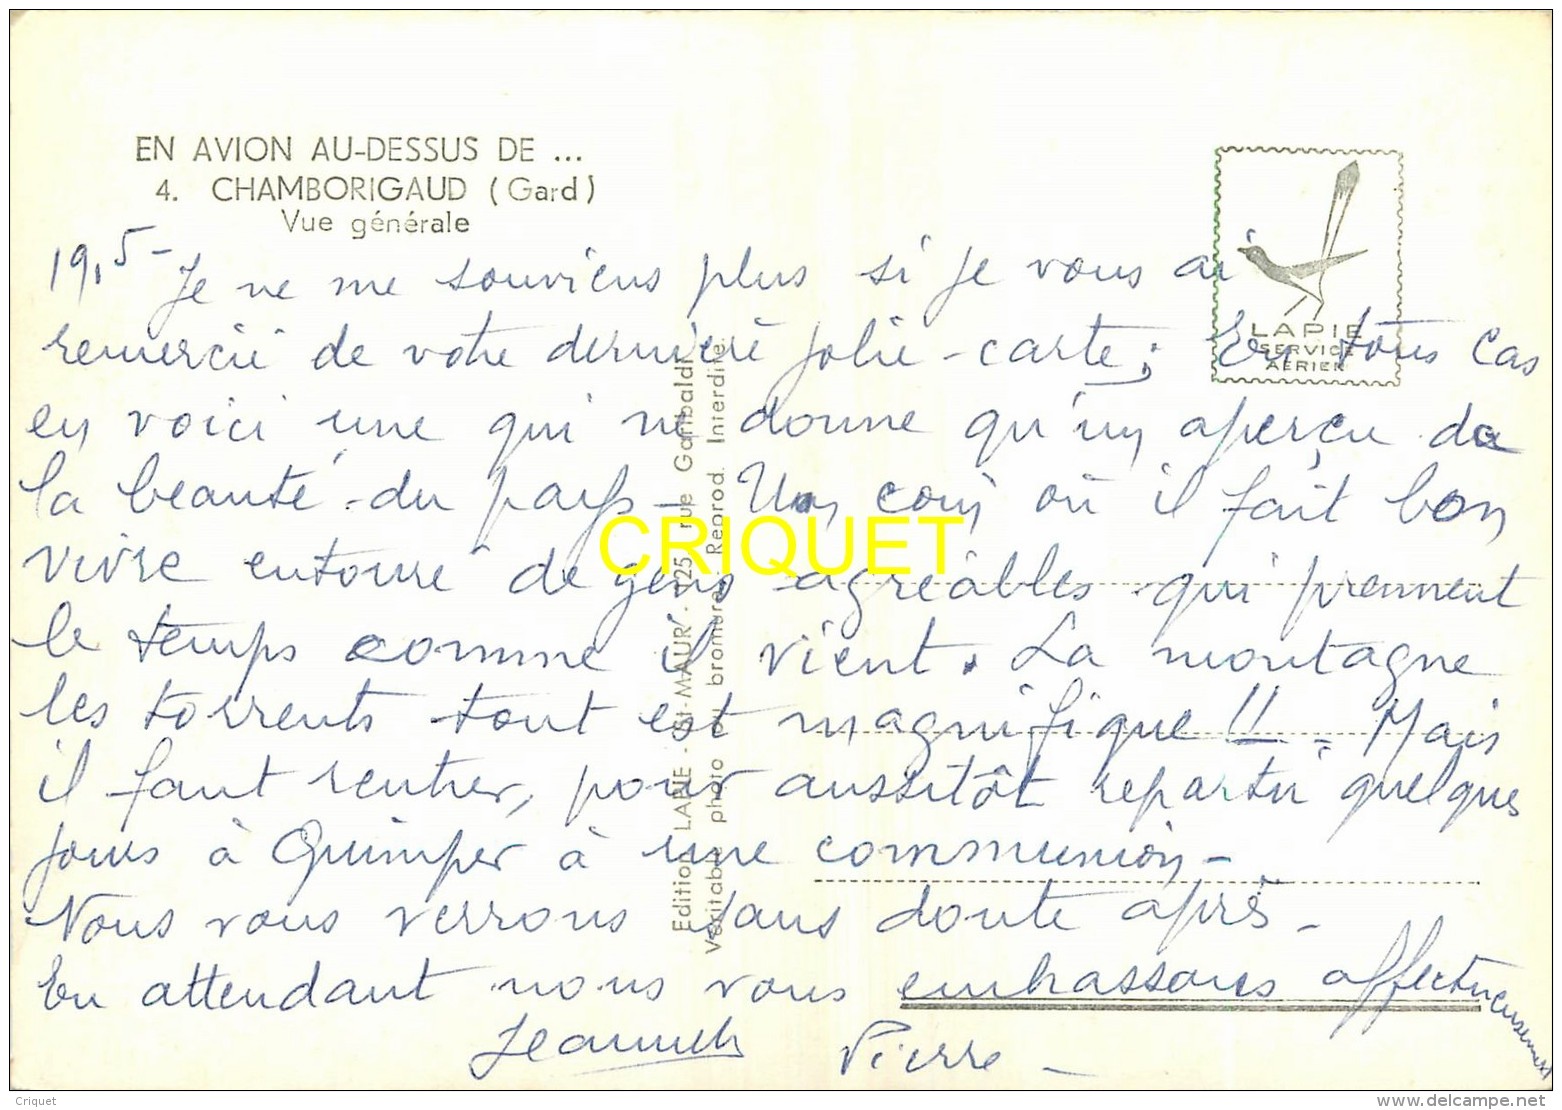 EN AVION AU-DESSUS DE ...
4. CHAMBORIGAUD (Gard)
Vue générale
LAPIE
SERVICE
AERIEN
19.5- Je ne me souviens plus si je vous ai
remercié de votre dernière jolie carte; En tous cas
en voici une qui ne donne qu'un aperçu de
la beauté du pays - Un coin où il fait bon
vivre entouré de gens agréables qui prennent
le temps comme il vient. La montagne
les torrents tout est magnifique !! - Mais
il faut rentrer, pour aussitôt repartir quelques
jours à Quimper à une communion -
Nous vous verrons sans doute après -
En attendant nous vous embrassons affectueusement
Jeannette Pierre -
Edition LAPIE - St-MAUR - 125, rue Garibaldi
Véritable photo au bromure - Reprod. Interdite.
CRIQUET
Criquet
www.delcampe.net